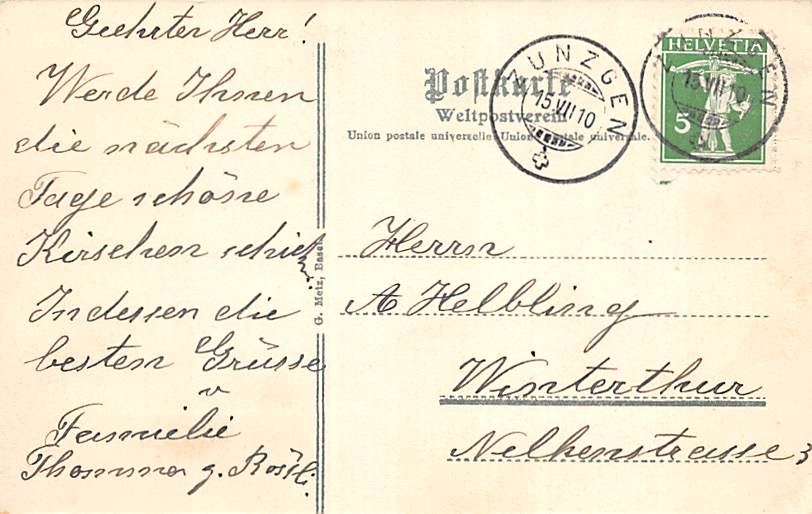 Geehrter Herr!
Werde Ihnen
die nächsten
Tage schöne
Kirschen schick
Indessen die
besten Grüsse
v
Familie
Thommen z. Rössli.
G. Metz, Basel
Postkarte
Weltpostverein
Union postale universelle Union postale universale.
ZUNZGEN
15.VII.10
HELVETIA
5
ZUNZGEN
15.VII.10
Herrn
A Helbling
Winterthur
Nelkenstrasse 3